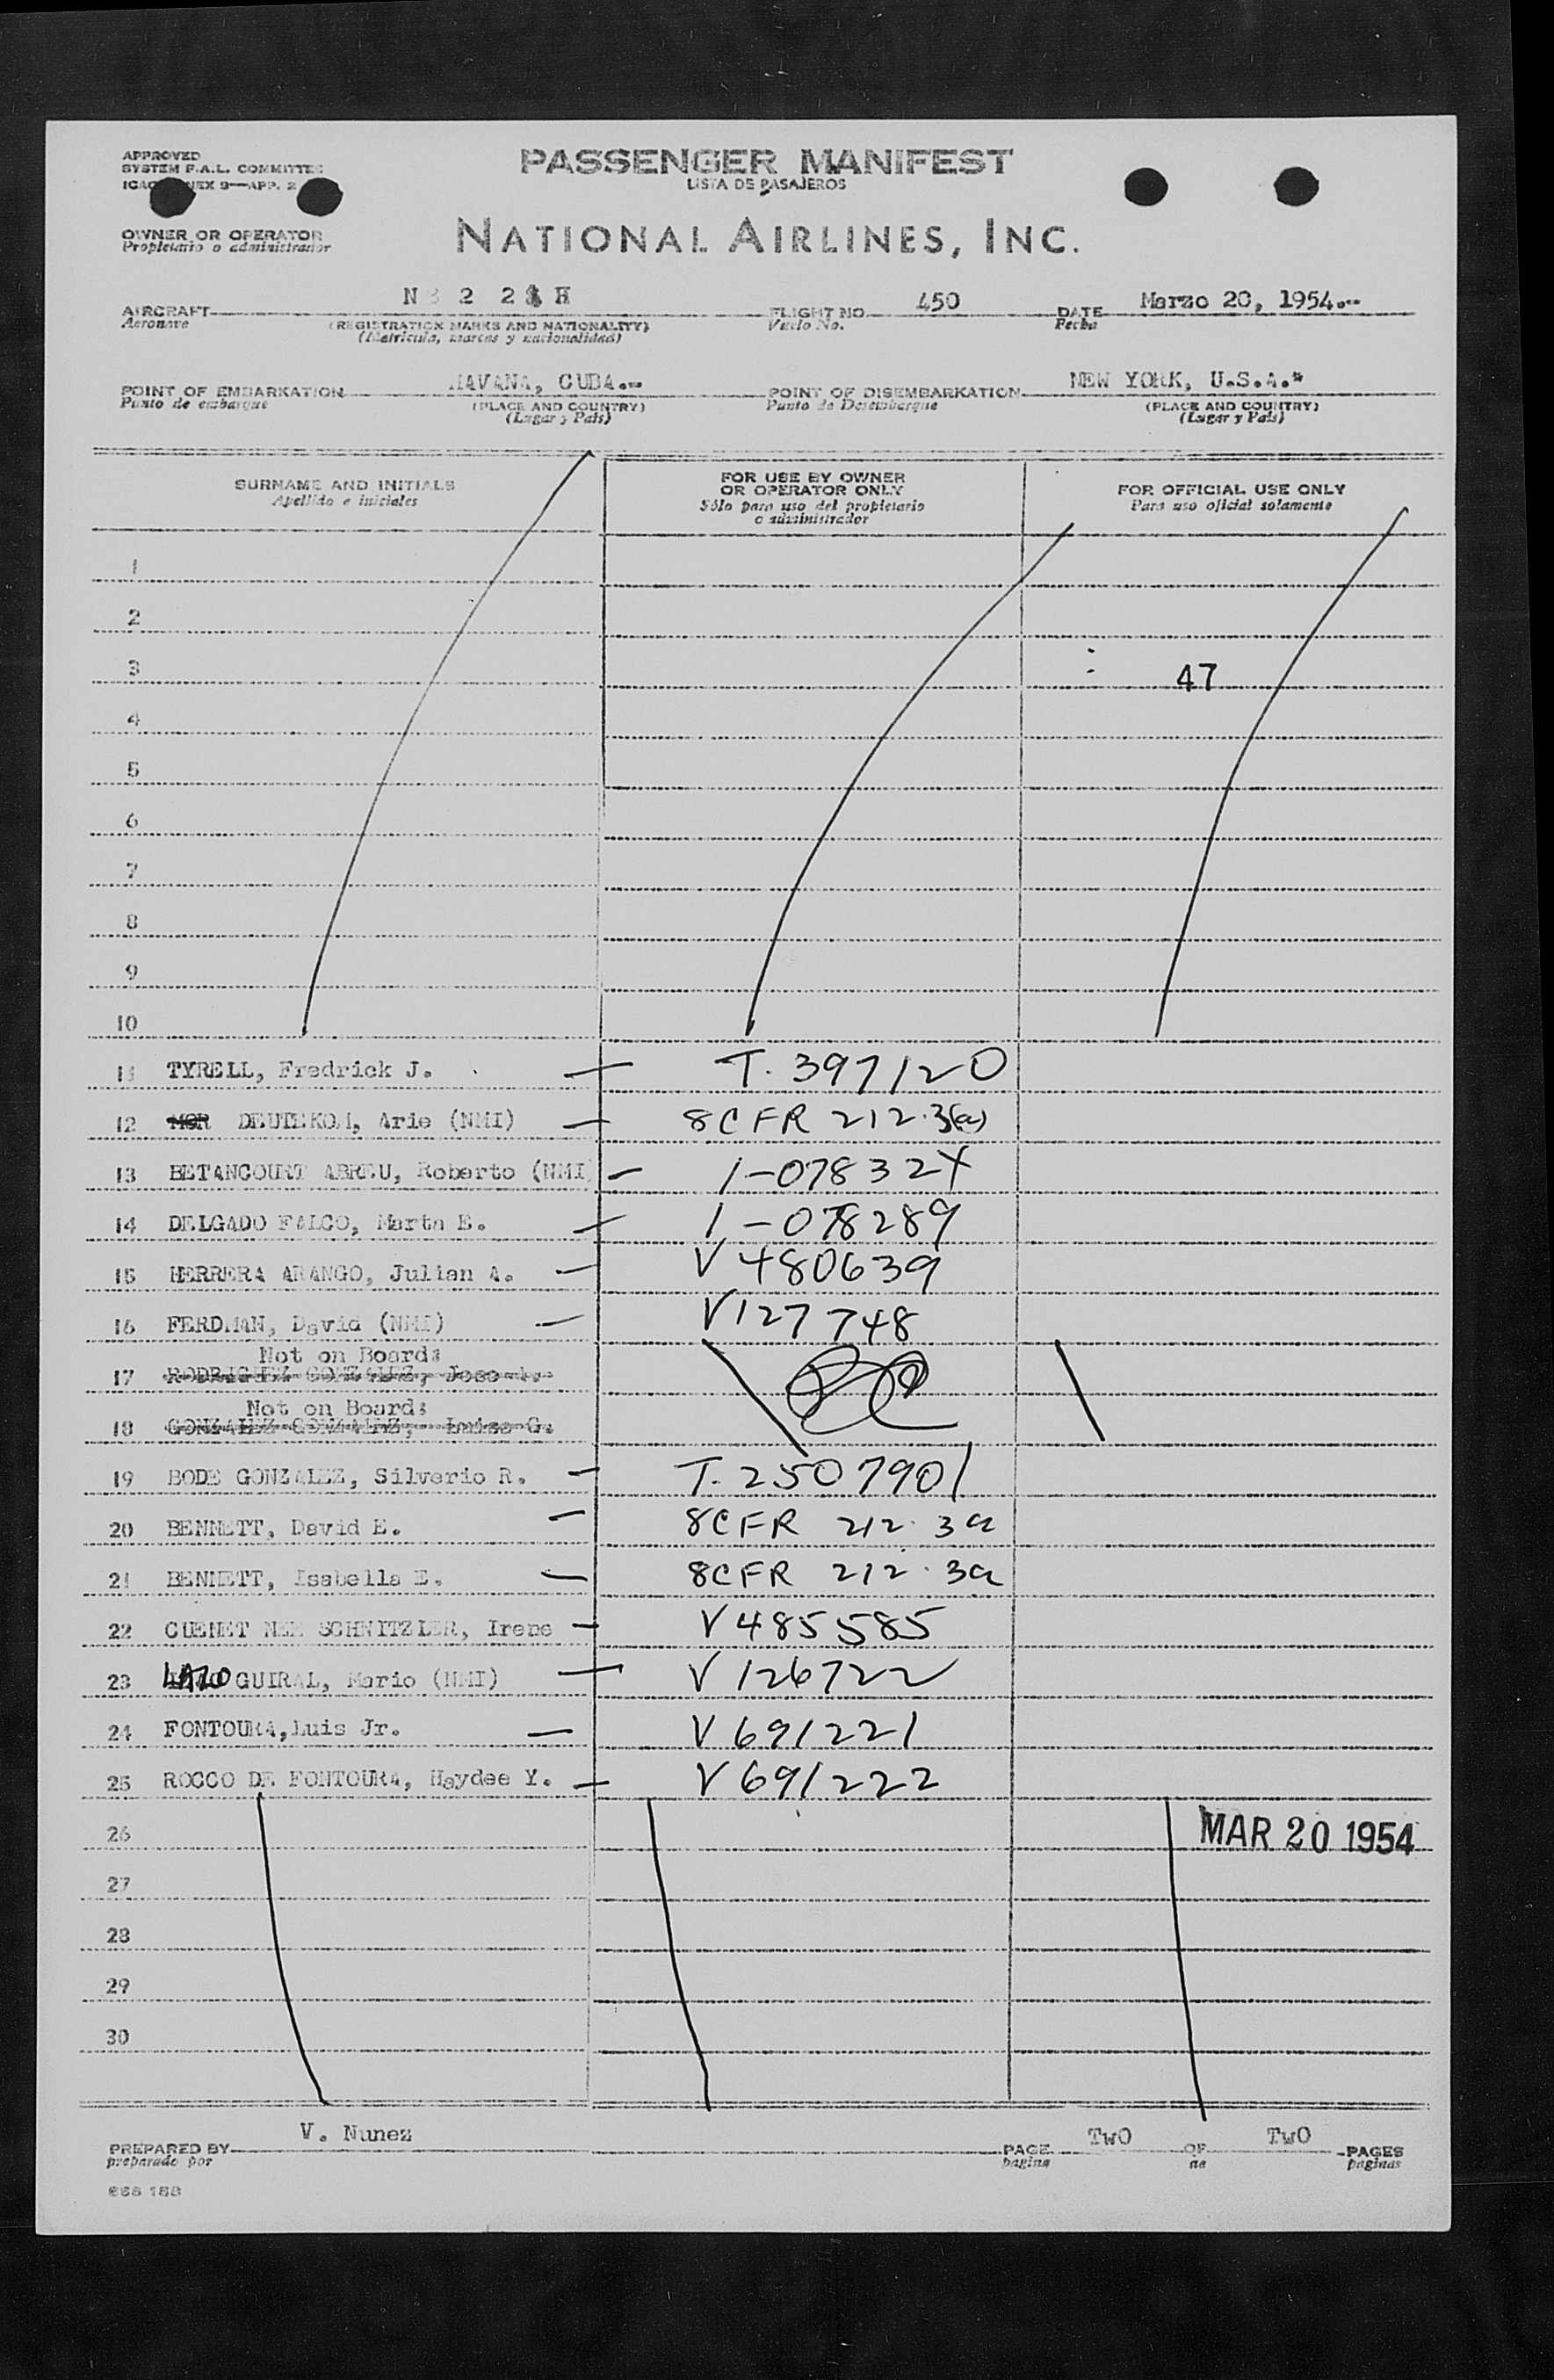 APPROVED
SYSTEM F.A.L. COMMITTEE
9—APP. 2
PASSENGER MANIFEST
LISTA DE PASAJEROS
OWNER OR OPERATOR
Propietario o administrador
NATIONAL AIRLINES, INC.
AIRCRAFT
Aeronave
(REGISTRATION MARKS AND NATIONALITY)
(Matricula, marcas y nacionalidad)
FLIGHT NO. 450
Vuelo No.
DATE Marzo 20, 1954.--
Fecha
POINT OF EMBARKATION HAVANA, CUBA.--
Punto de embarque
(PLACE AND COUNTRY)
(Lugar y Pais)
POINT OF DISEMBARKATION NEW YORK, U.S.A.*
Punto de Desembarque
(PLACE AND COUNTRY)
(Lugar y Pais)
SURNAME AND INITIALS
Apellido e iniciales
FOR USE BY OWNER
OR OPERATOR ONLY
Sólo para uso del propietario
o administrador
FOR OFFICIAL USE ONLY
Para uso oficial solamente
1
2
3 47
4
5
6
7
8
9
10
11 TYRELL, Fredrick J. — T. 397120
12 MOR DEUTEKOM, Arie (NMI) — 8CFR 212.3(a)
13 BETANCOURT ABREU, Roberto (NMI — 1-078324
14 DELGADO FALCO, Marta E. — 1-078289
15 HERRERA ARANGO, Julian A. — V 480639
16 FERDMAN, David (NMI) — V127748
Not on Board:
17 RODRIGUEZ GONZALEZ, Jose
Not on Board:
18 GONZALEZ GONZALEZ, Luisa G.
19 BODE GONZALEZ, Silverio R. — T. 2507901
20 BENNETT, David E. — 8CFR 212.3a
21 BENNETT, Isabella E. — 8CFR 212.3a
22 CUENET NEE SCHNITZLER, Irene — V485585
23 LAZO GUIRAL, Mario (NMI) — V 126722
24 FONTOURA, Luis Jr. — V 691221
25 ROCCO DE FONTOURA, Haydee Y. — V 691222
26 MAR 20 1954
27
28
29
30
PREPARED BY V. Nunez
preparado por
PAGE TwO OF TwO PAGES
pagina de paginas